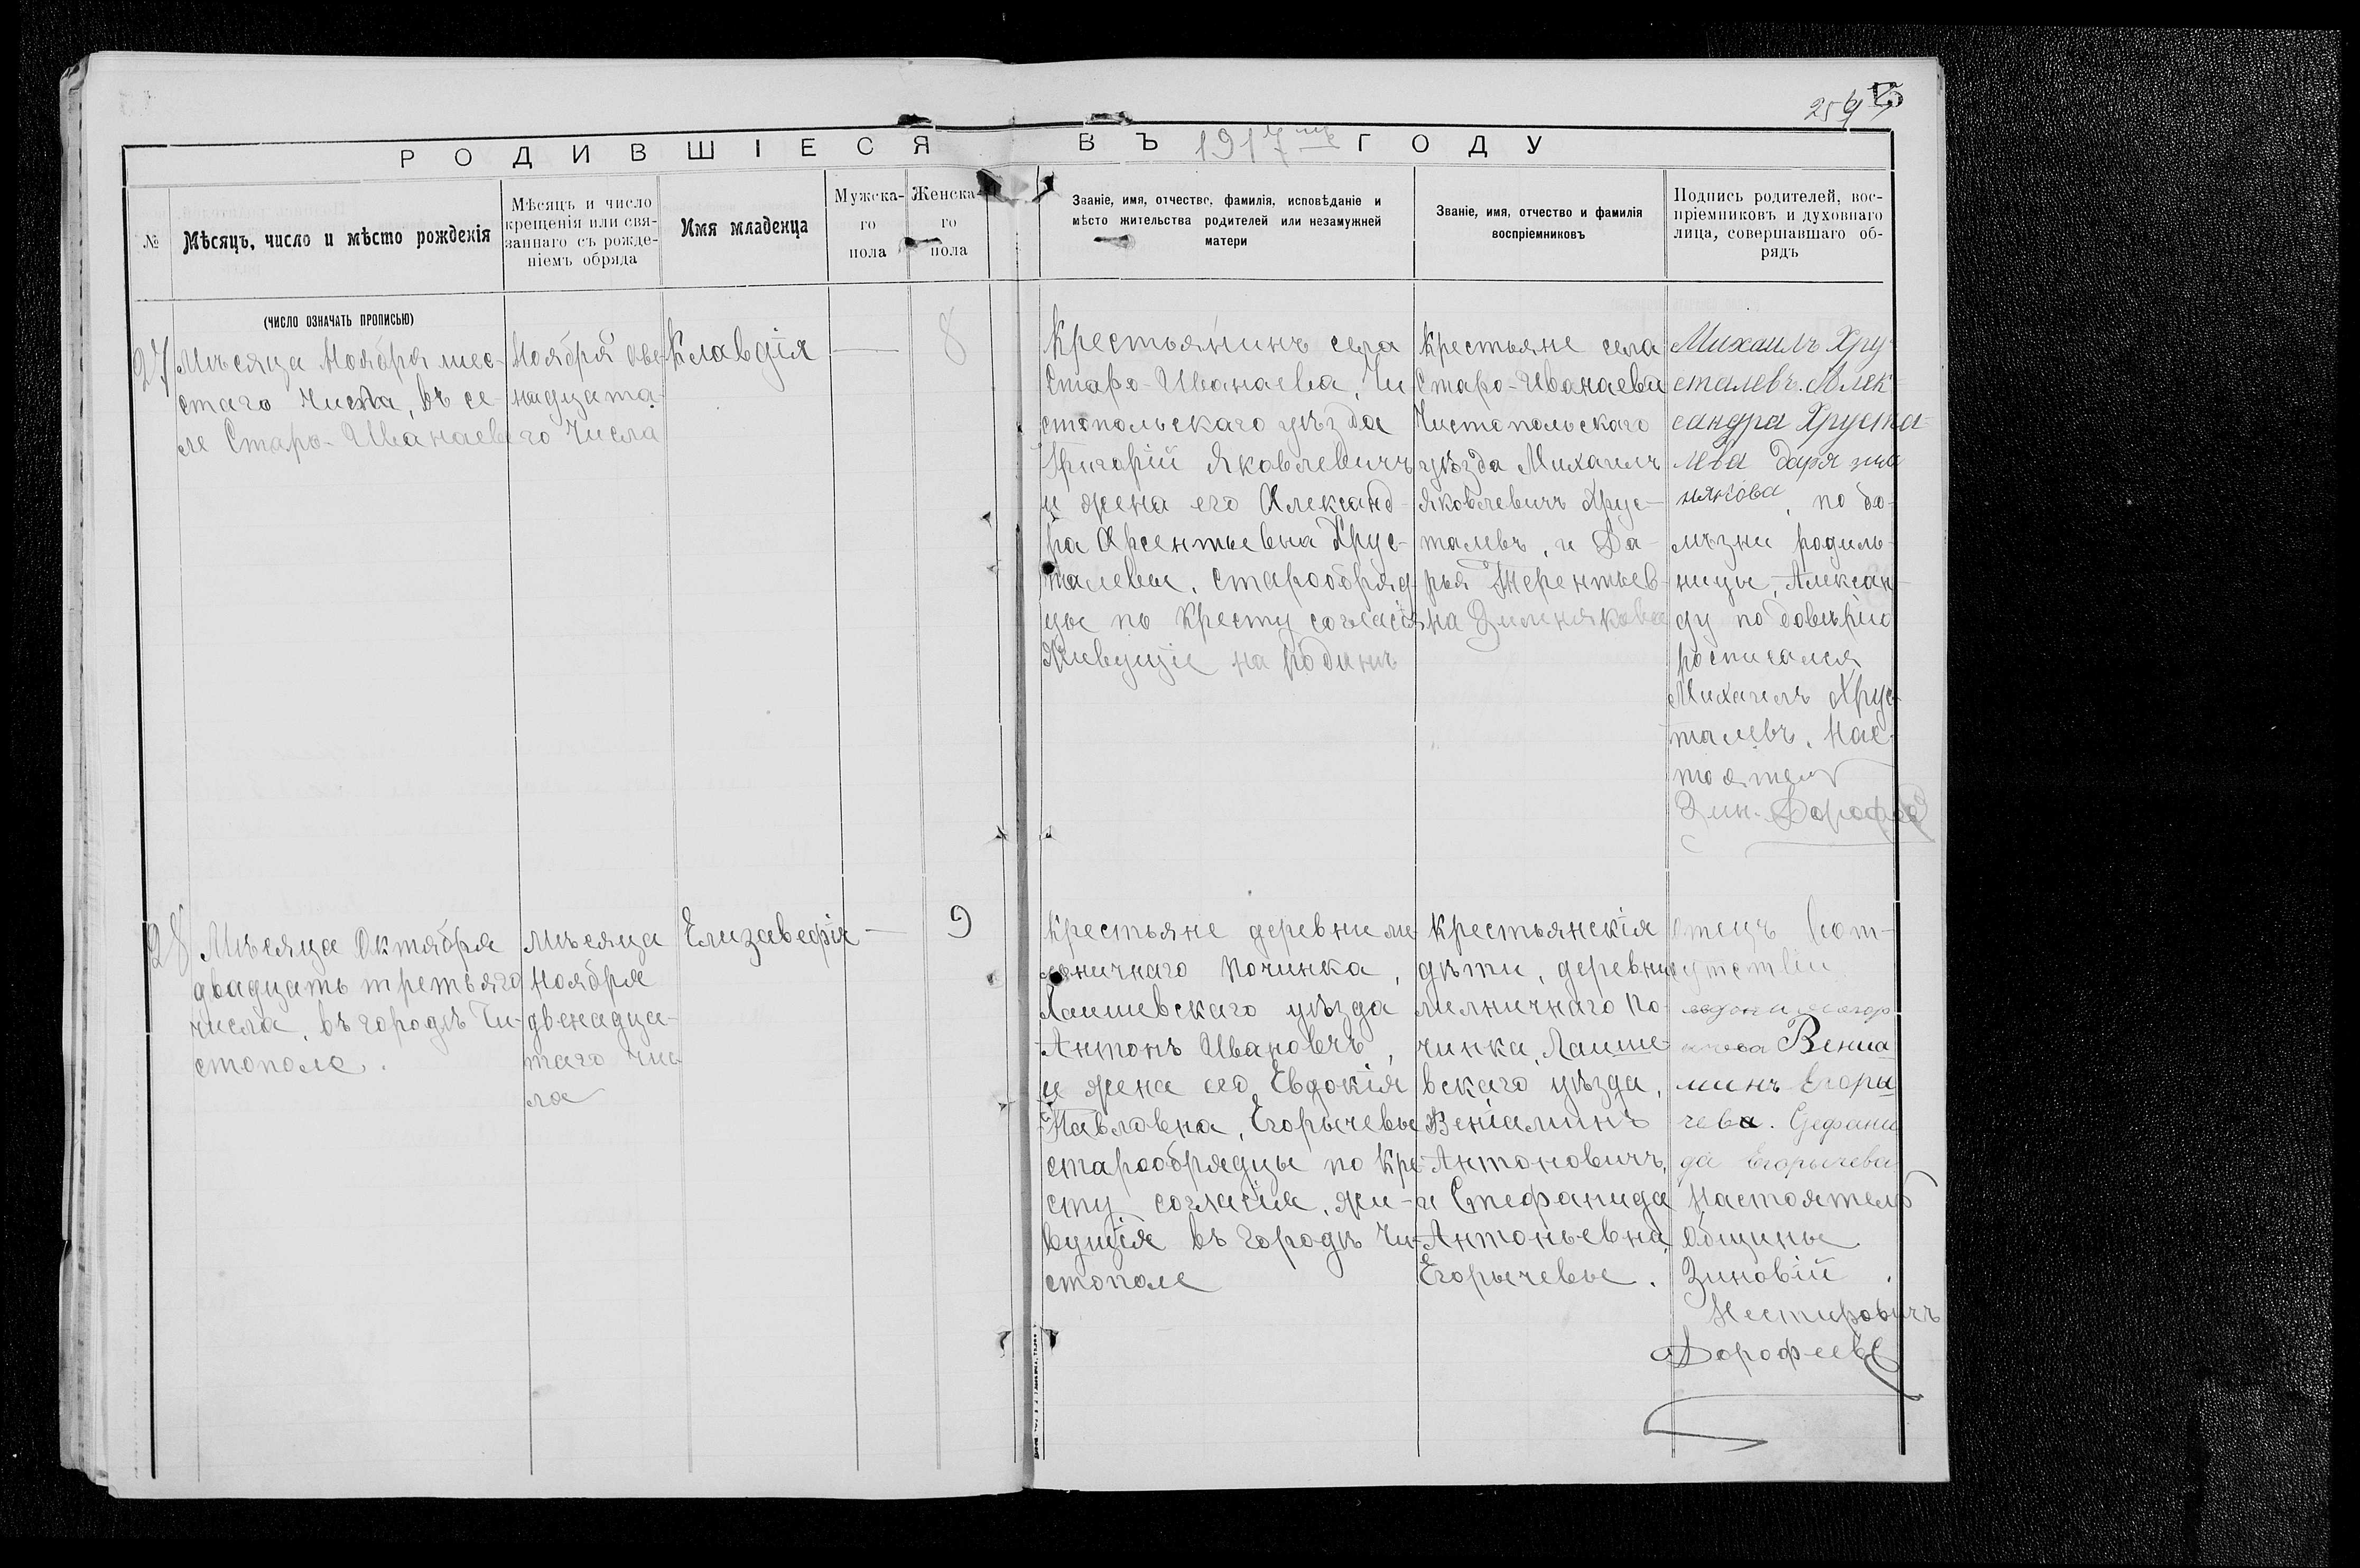 РОДИВШІЕСЯ ВЪ 1917 ГОДУ
№
Мѣсяцъ, число и мѣсто рожденія
Мѣсяцъ и число
крещенія или свя-
заннаго съ рожде-
ніемъ обряда
Имя младенца
Мужска-
го
пола
Женска-
го
пола
Званіе, имя, отчество, фамилія, исповѣданіе и
мѣсто жительства родителей или незамужней
матери
Званіе, имя, отчество и фамилія
воспріемниковъ
Подпись родителей, вос-
пріемниковъ и духовнаго
лица, совершавшаго об-
рядъ
(ЧИСЛО ОЗНАЧАТЬ ПРОПИСЬЮ)
27
Мѣсяца Ноября шес-
таго числа, въ се-
ле Старо-Иванаеве
Ноября две-
надцата-
го Числа
Клавдія
—
8
Крестьянинъ села
Старо-Иванаева, Чи
стопольскаго уѣзда
Григорій Яковлевичъ
и жена его Александ-
ра Арсентьевна Хрус-
талевы, старообряд-
цы по Кресту согласія
Живущіе на родинѣ
Крестьяне села
Старо-Иванаева
Чистопольского
уѣзда Михаилъ
Яковлевичъ Хрус-
талевъ, и Да-
рья Терентьев-
на Зиленякова
Михаилъ Хру
сталевъ. Алек
сандра Хруста-
лева Даря
по бо-
лѣзни родиль-
ницы, Алексан-
ду по довѣрію
росписался
Михаилъ Хрус-
талевъ. Нас-
тоятель
Зин. Дорофеев
28
Мѣсяца Октября
двадцать третьяго
числа, въ городѣ Чи-
стополе.
Мѣсяца
Ноября
двенадца-
таго чис
ла
Елизавефія
—
9
Крестьяне деревни ме
ничнаго Починка,
Лаишевскаго уѣзда
Антонъ Ивановчъ,
и жена его Евдокія
Павловна, Егорычевы
старообрядцы по Кре-
сту согласія, жи-
вущія въ городѣ Чи-
стополе
Крестьянскія
дѣти, деревни
мелничнаго По-
чинка, Лаише-
вскаго уѣзда,
Веніаминъ
Антоновичъ,
и Стефанида
Антоньевна
Егорычевы.
Отецъ
Вениа
минъ Егоры
чева. Сефани
да Егорычева
Настоятель
Общины
Зиновій
Нестировичъ
Дорофеевъ